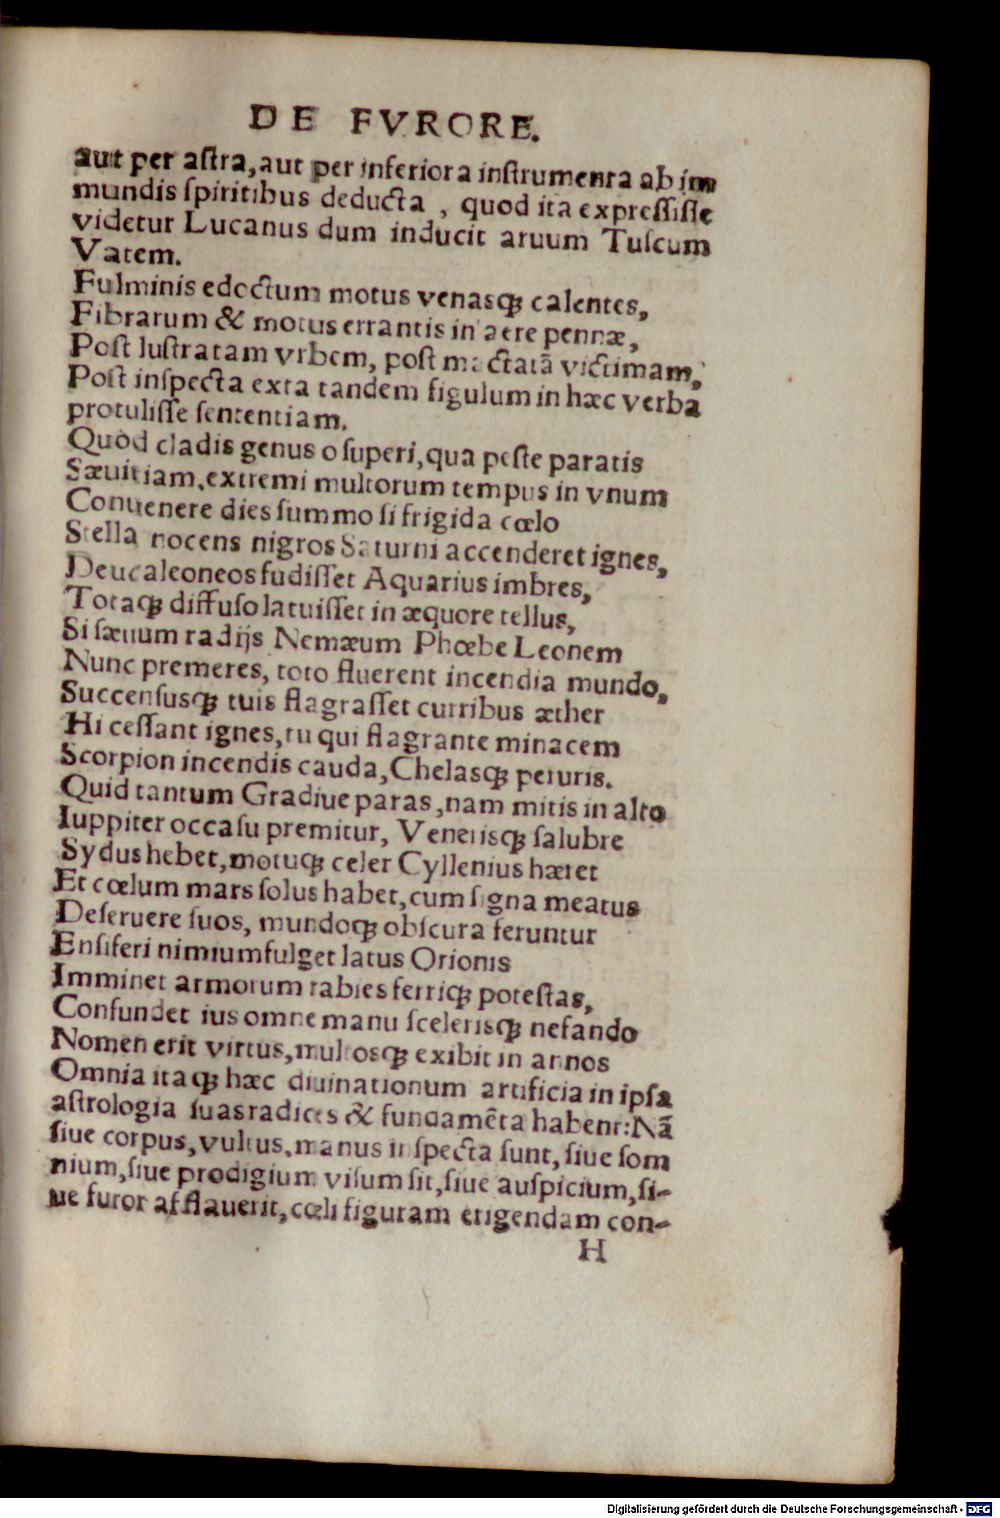 DE FVRORE.
aut per aſtra, aut per inferiora inſtrumenra ab im
mundis ſpiritibus deducta , quod ita expreſſiſſe
videtur Lucanus dum inducit aruum Tuſcum
Vatem.
Fulminis edoctum motus venasq́; calentes,
Fibrarum & motus errantis in aere pennæ,
Poſt luſtratam vrbem, poſt mactatã victimam,
Poſt inſpecta exta tandem figulum in hæc verba
protuliſſe ſententiam.
Quòd cladis genus o ſuperi, qua peſte paratis
Sæuitiam, extremi multorum tempus in vnum
Conuenere dies ſummo ſi frigida cœlo
Stella nocens nigros Saturni accenderet ignes,
Deucaleoneos fudiſſet Aquarius imbres,
Totaq́; diffuſo latuiſſet in æquore tellus,
Si ſæuum radijs Nemæum Phœbe Leonem
Nunc premeres, toto fluerent incendia mundo,
Succenſusq́; tuis flagraſſet curribus æther
Hi ceſſant ignes, tu qui flagrante minacem
Scorpion incendis cauda, Chelasq́; peruris.
Quid tantum Gradiue paras, nam mitis in alto
Iuppiter occaſu premitur, Venerisq́; ſalubre
Sydus hebet, motuq́; celer Cyllenius hæret
Et cœlum mars ſolus habet, cum ſigna meatus
Deſeruere ſuos, mundoq́; obſcura feruntur
Enſiferi nimiumfulget latus Orionis
Imminet armorum rabies ferriq́; poteſtas,
Confundet ius omne manu ſcelerisq́; nefando
Nomen erit virtus, multosq́; exibit in annos
Omnia itaq́; hæc diuinationum artificia in ipſa
aſtrologia ſuas radices & fundamẽta habent: Nã
ſiue corpus, vultus, manus inſpecta ſunt, ſiue ſom
nium, ſiue prodigium viſum ſit, ſiue auſpicium, ſi-
ue furor afflauerit, cœli figuram erigendam con-
H
Digitalisierung gefördert durch die Deutsche Forschungsgemeinschaft - DFG